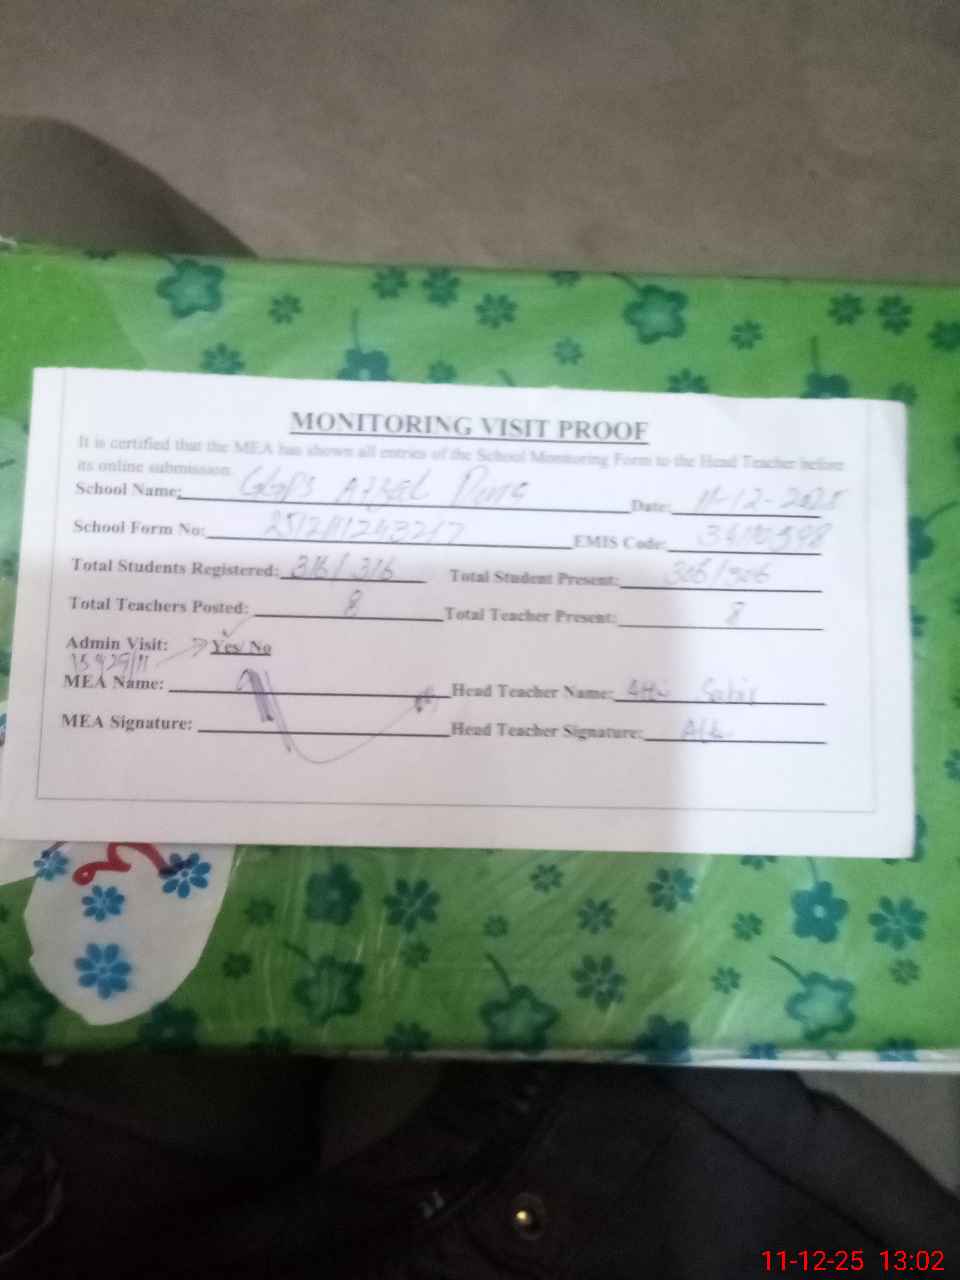 MONITORING VISIT PROOF
It is certified that the MEA has shown all entries of the School Monitoring Form to the Head Teacher before
its online submission.
School Name: Date: 11-12-2025
School Form No: EMIS Code:
Total Students Registered: 316/316 Total Student Present: 306/306
Total Teachers Posted: 8 Total Teacher Present: 8
Admin Visit: Yes/ No
MEA Name: Head Teacher Name:
MEA Signature: Head Teacher Signature:
11-12-25 13:02